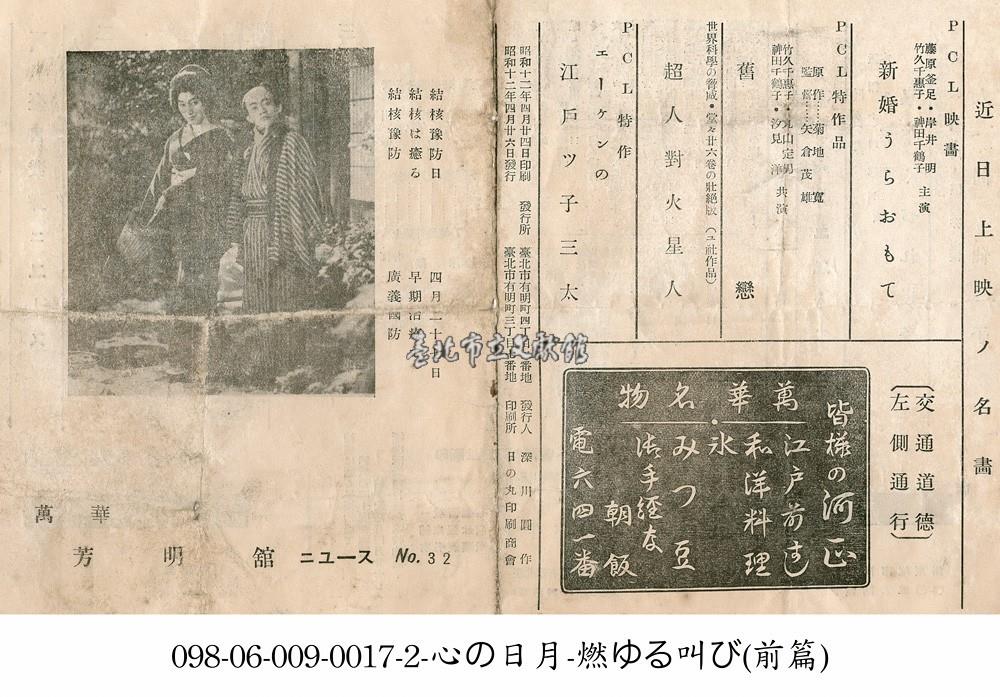 近日上映ノ名畫
PCL映畫
藤原釜足・岸井 明
竹久千惠子・神田千鶴子
主演
新婚うらおもて
PCL特作品
原作……菊池 寛
監督……矢倉茂雄
竹久千惠子・丸山定男
神田千鶴子・汐見 洋
共演
舊戀
世界科學の脅威・堂々廿六巻の壯絶版(ユ社作品)
超人對火星人
PCL特作
エーケンの
江戸ツ子三太
(交通道德
左側通行)
皆様の河正
萬華名物
江戸前すし
和洋料理
氷
みつ豆
御手軽な
朝飯
電六四一番
昭和十二年四月廿四日印刷
昭和十二年四月廿六日發行
發行所 臺北市有明町四丁目 番地
臺北市有明町三丁目七番地
發行人 深川圓作
印刷所 日の丸印刷商會
結核豫防日 四月二十 日
結核は癒る 早期治療
結核豫防 廣義國防
臺北市立文獻館
萬華
芳明舘 ニュース No.32
098-06-009-0017-2-心の日月-燃ゆる叫び(前篇)